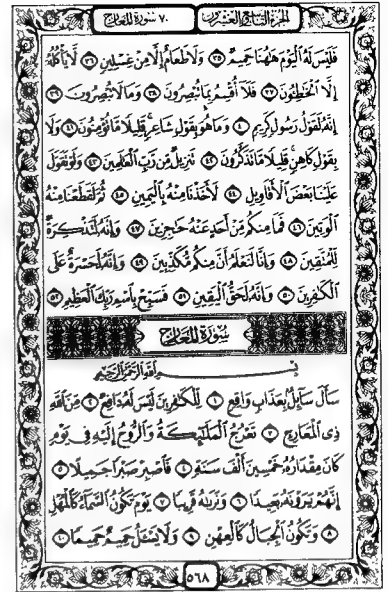 الجزء التاسع والعشرون
٧٠ سورة المعارج
فَلَيْسَ لَهُ ٱلْيَوْمَ هَٰهُنَا حَمِيمٌ ٣٥ وَلَا طَعَامٌ إِلَّا مِنْ غِسْلِينٍ ٣٦ لَّا يَأْكُلُهُۥٓ
إِلَّا ٱلْخَٰطِـُٔونَ ٣٧ فَلَآ أُقْسِمُ بِمَا تُبْصِرُونَ ٣٨ وَمَا لَا تُبْصِرُونَ ٣٩
إِنَّهُۥ لَقَوْلُ رَسُولٍ كَرِيمٍ ٤٠ وَمَا هُوَ بِقَوْلِ شَاعِرٍ ۚ قَلِيلًا مَّا تُؤْمِنُونَ ٤١ وَلَا
بِقَوْلِ كَاهِنٍ ۚ قَلِيلًا مَّا تَذَكَّرُونَ ٤٢ تَنزِيلٌ مِّن رَّبِّ ٱلْعَٰلَمِينَ ٤٣ وَلَوْ تَقَوَّلَ
عَلَيْنَا بَعْضَ ٱلْأَقَاوِيلِ ٤٤ لَأَخَذْنَا مِنْهُ بِٱلْيَمِينِ ٤٥ ثُمَّ لَقَطَعْنَا مِنْهُ
ٱلْوَتِينَ ٤٦ فَمَا مِنكُم مِّنْ أَحَدٍ عَنْهُ حَٰجِزِينَ ٤٧ وَإِنَّهُۥ لَتَذْكِرَةٌ
لِّلْمُتَّقِينَ ٤٨ وَإِنَّا لَنَعْلَمُ أَنَّ مِنكُم مُّكَذِّبِينَ ٤٩ وَإِنَّهُۥ لَحَسْرَةٌ عَلَى
ٱلْكَٰفِرِينَ ٥٠ وَإِنَّهُۥ لَحَقُّ ٱلْيَقِينِ ٥١ فَسَبِّحْ بِٱسْمِ رَبِّكَ ٱلْعَظِيمِ ٥٢
سُورَةُ المَعَارِجِ
بِسْمِ ٱللَّهِ ٱلرَّحْمَٰنِ ٱلرَّحِيمِ
سَأَلَ سَآئِلٌۢ بِعَذَابٍ وَاقِعٍ ١ لِّلْكَٰفِرِينَ لَيْسَ لَهُۥ دَافِعٌ ٢ مِّنَ ٱللَّهِ
ذِى ٱلْمَعَارِجِ ٣ تَعْرُجُ ٱلْمَلَٰٓئِكَةُ وَٱلرُّوحُ إِلَيْهِ فِى يَوْمٍ
كَانَ مِقْدَارُهُۥ خَمْسِينَ أَلْفَ سَنَةٍ ٤ فَٱصْبِرْ صَبْرًا جَمِيلًا ٥
إِنَّهُمْ يَرَوْنَهُۥ بَعِيدًا ٦ وَنَرَىٰهُ قَرِيبًا ٧ يَوْمَ تَكُونُ ٱلسَّمَآءُ كَٱلْمُهْلِ
٨ وَتَكُونُ ٱلْجِبَالُ كَٱلْعِهْنِ ٩ وَلَا يَسْـَٔلُ حَمِيمٌ حَمِيمًا ١٠
٥٦٨